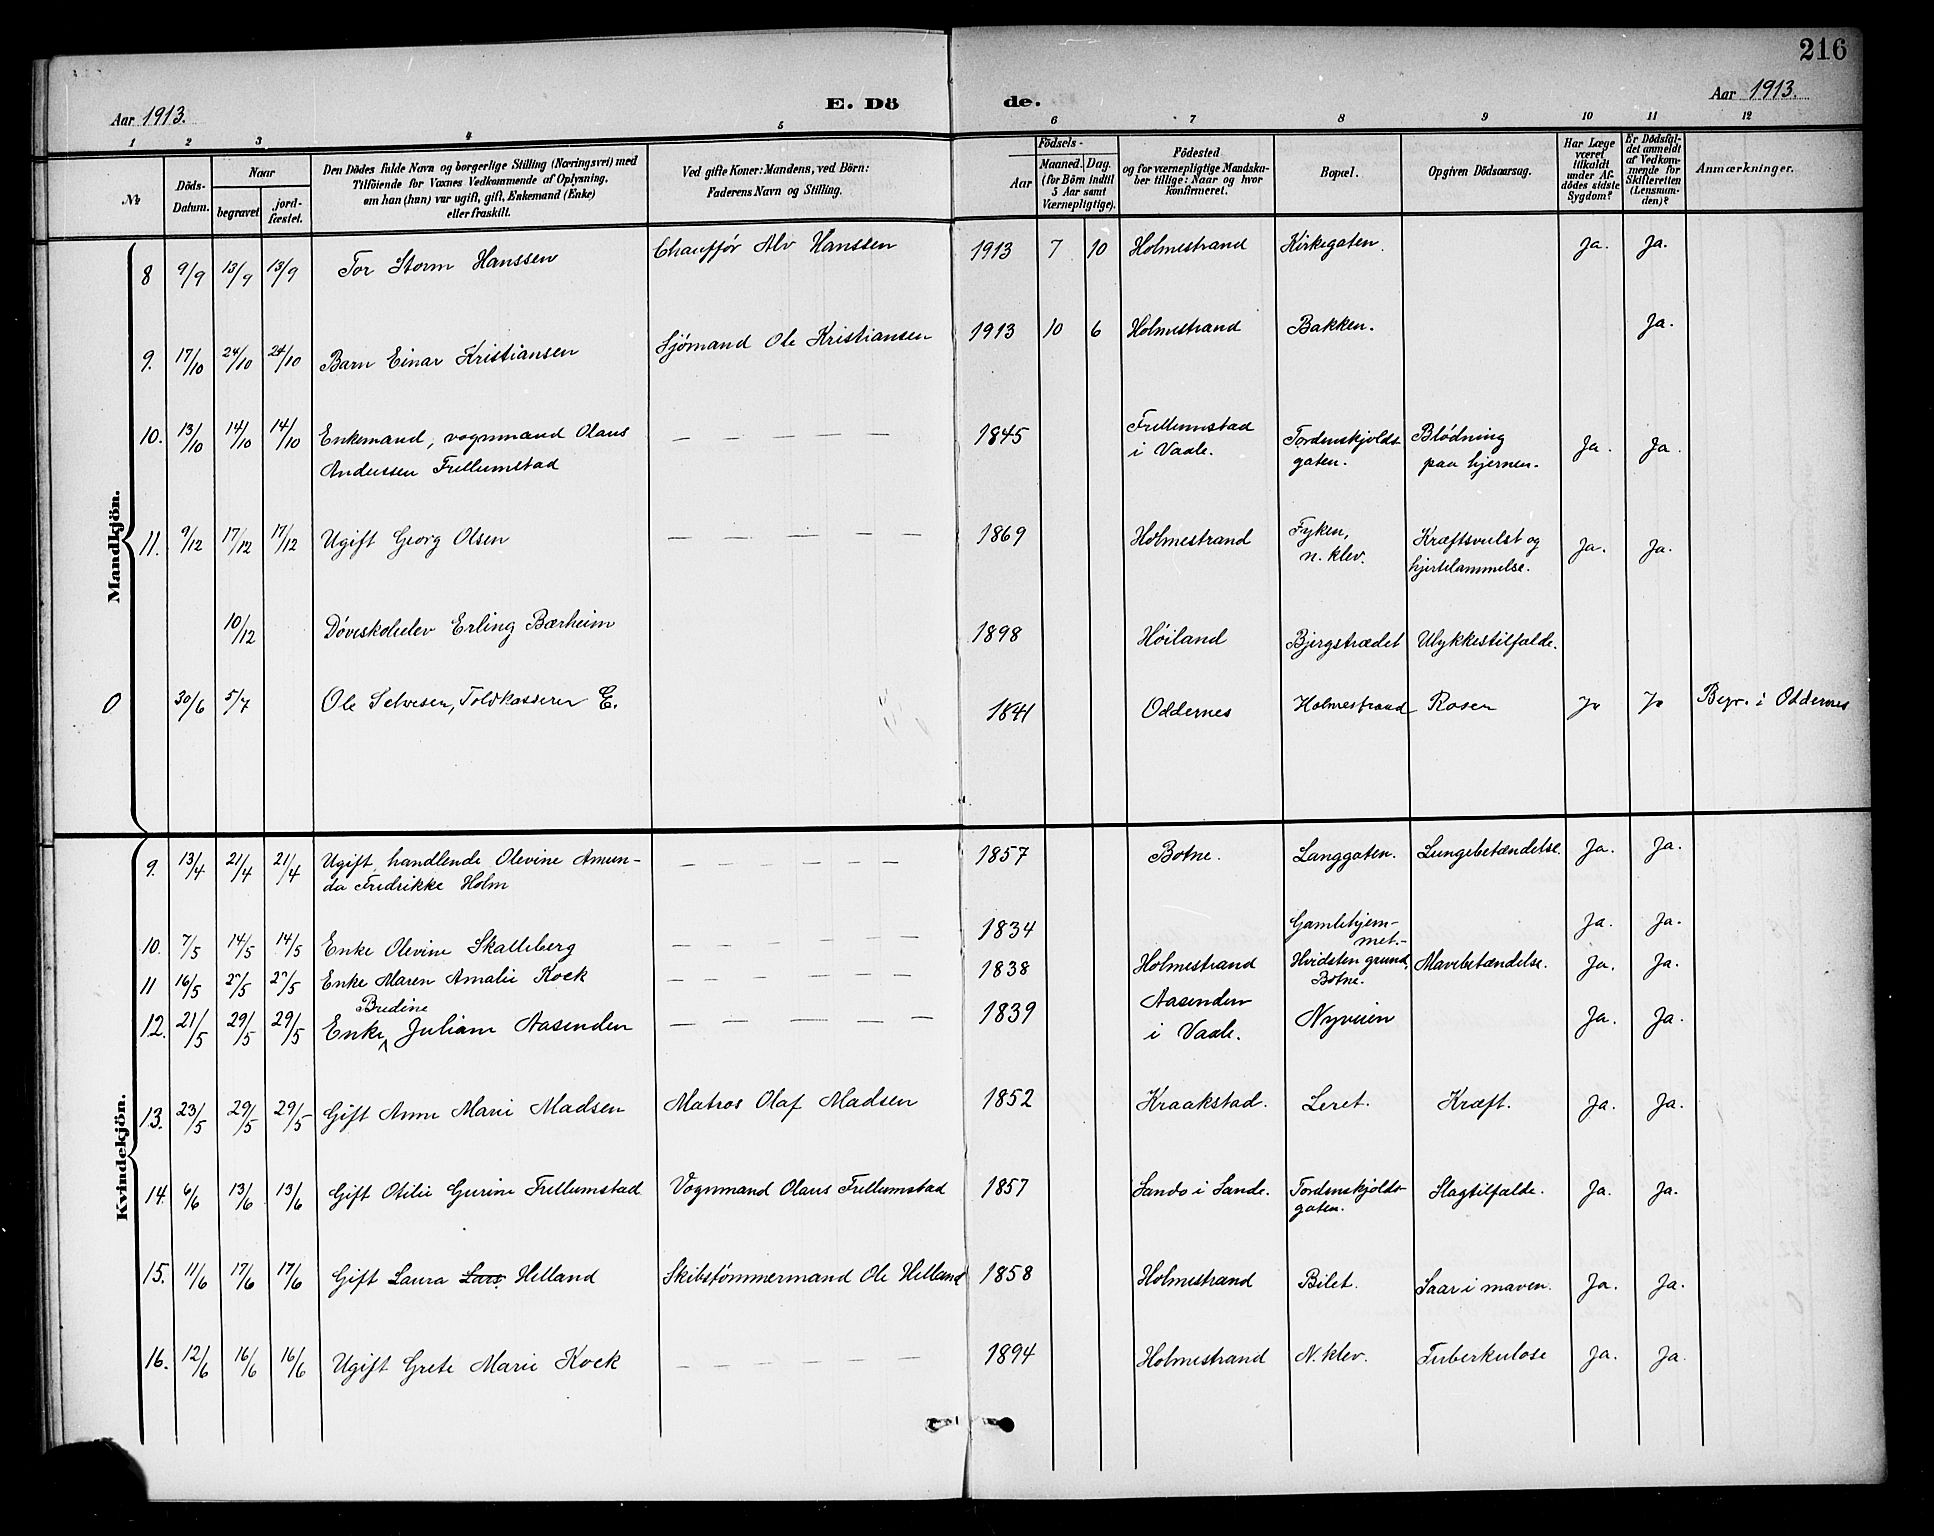 216
Aar 1913.
E. Dö de.
Aar 1913.
1 2 3 4 5 6 7 8 9 10 11 12
№
Döds-Datum.
Naar
begravet
jord-fæstet.
Den Dödes fulde Navn og borgerlige Stilling (Næringsvei) med
Tilföiende for Voxnes Vedkommende af Oplysning,
om han (hun) var ugift, gift, Enkemand (Enke)
eller fraskilt.
Ved gifte Koner: Mandens, ved Börn:
Faderens Navn og Stilling.
Födsels-
Aar
Maaned. Dag.
(for Börn indtil
5 Aar samt
Værnepligtige).
Födested
og for værnepligtige Mandska-
ber tillige: Naar og hvor
konfirmeret.
Bopæl.
Opgiven Dödsaarsag.
Har Læge
været
tilkaldt
under Af-
dödes sidste
Sygdom?
Er Dödsfal-
det anmeldt
af Vedkom-
mende for
Skifteretten
(Lensman-
den)?
Anmærkninger.
Mandkjön.
8 9/9 13/9 13/9 Tor Storm Hanssen Chauffør Alv Hanssen 1913 7 10 Holmestrand Kirkegaten. Ja. Ja.
9. 17/10 24/10 24/10 Barn Einar Kristiansen Sjømand Ole Kristiansen 1913 10 6 Holmestrand Bakken. Ja.
10. 13/10 14/10 14/10 Enkemand, vognmand Olaus — — — — — 1845 Frellumstad Tordenskjolds Blødning Ja. Ja.
Anderssen Frellumstad i Vaale. gaten. paa hjernen.
11. 9/12 17/12 17/12 Ugift Georg Olsen — — — — — — 1869 Holmestrand Fyken, Kræftsvulst og Ja. Ja.
n. klev. hjertelammelse.
10/12 Døveskoleelev Erling Bærheim 1898 Høiland Bjergstrædet Ulykkestilfælde.
0 30/6 5/7 Ole Selvesen, Toldkasserer E. 1841 Oddernes Holmestrand Rosen Ja Ja Begr. i Oddernes
Kvindekjön.
9. 13/4 21/4 21/4 Ugift handlende Olevine Amun- — — — — — — 1857 Botne. Langgaten. Lungebetændelse. Ja. Ja.
da Fredrikke Holm
10. 7/5 14/5 14/5 Enke Olevine Skalleberg — — — — — — 1834 Gamlehjem- Ja. Ja.
met.-
11 16/5 /5 /5 Enke Maren Amalie Kock — — — — — — 1838 Holmestrand Hvidsten grund, Mavebetændelse. Ja. Ja.
Botne.
Bredine
12. 21/5 29/5 29/5 Enke Juliane Aasenden — — — — — — 1839 Aasenden Nyveien Ja. Ja.
i Vaale.
13. 23/5 29/5 29/5 Gift Anne Marie Madsen Matros Olaf Madsen 1852 Kraakstad. Leret. Kræft. Ja. Ja.
14. 6/6 13/6 13/6 Gift Otilie Gurine Frellumstad Vognmand Olaus Frellumstad 1857 Sando i Sande. Tordenskjolds- Slagtilfælde. Ja. Ja.
gaten.
15. 11/6 17/6 17/6 Gift Laura Lars. Helland Skibstømmermand Ole Helland 1858 Holmestrand Bilet. Saar i maven. Ja. Ja.
16. 12/6 16/6 16/6 Ugift Grete Marie Kock — — — — — — 1894 Holmestrand N. klev. Tuberkulose Ja. Ja.